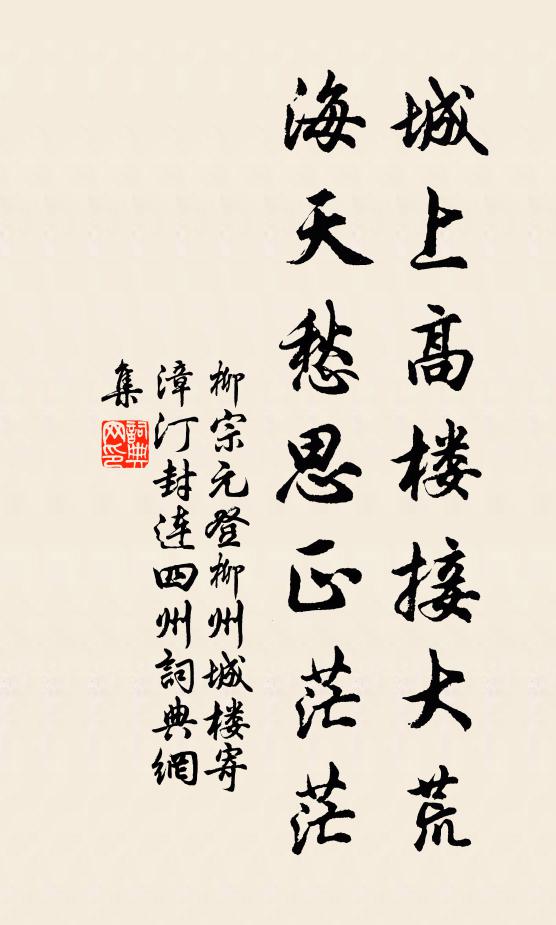 城上高楼接大荒
海天愁思正茫茫
柳宗元登柳州城楼寄
漳汀封连四州詞典網
集
詞典網印